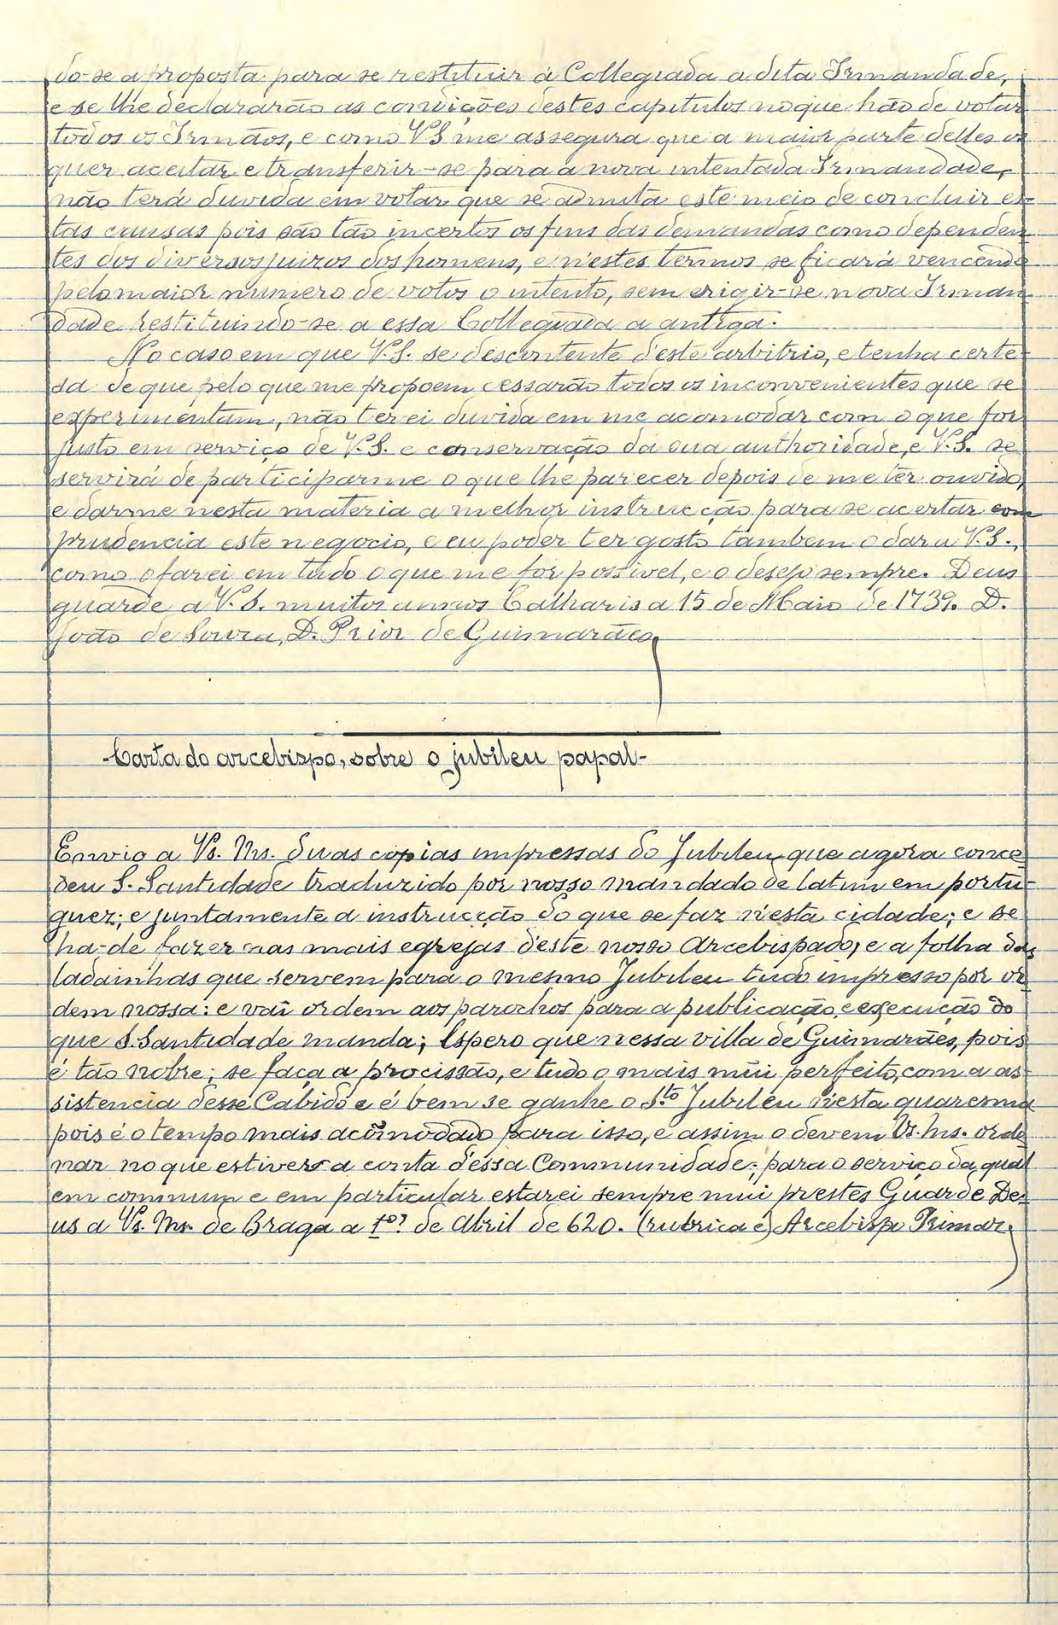 do-se a proposta para se restituir á Collegiada a dita Irmandade,
e se lhe declararão as condições destes capitulos no que hão de votar
todos os Irmãos, e como V.S me assegura que a maior parte delles os
quer aceitar e transferir-se para a nova intentada Irmandade,
não terá duvida em votar que se admita este meio de concluir es-
tas causas pois são tão incertos os fins das demandas como dependen
tes dos diversos juizos dos homens, e n'estes termos se ficará vencendo
pelo maior numero de votos o intento, sem erigir-se nova Irman
dade restituindo-se a essa Collegiada a antiga.
No caso em que V.S. se descontente d'este arbitrio, e tenha certe-
sa de que pelo que me propoem cessarão todos os inconvenientes que se
experimentam, não terei duvida em me acomodar com o que for
justo em serviço de V.S. e conservação da sua authoridade, e V.S. se
servirá de participarme o que lhe parecer depois de me ter ouvido,
e darme nesta materia a melhor instrucção para se acertar com
prudencia este negocio, e eu poder ter gosto tambem o dar a V.S.,
como o farei em tudo o que me for possivel, e o desejo sempre. Deus
guarde a V.S. muitos annos Calharis a 15 de Maio de 1739. D.
João de Souza, D. Prior de Guimarães,
-Carta do arcebispo, sobre o jubileu papal-
Envio a Vs. Ms. duas copias impressas do Jubileu que agora conce
deu S. Santidade traduzido por nosso mandado de latim em portu-
guez; e juntamente a instrucção do que se faz n'esta cidade; e se
ha-de fazer nas mais egrejas d'este nosso Arcebispado, e a folha das
ladainhas que servem para o mesmo Jubileu tudo impresso por or
dem nossa: e vai ordem aos parochos para a publicação, e execução do
que S. Santidade manda; Espero que nessa villa de Guimarães, pois
é tão nobre; se faça a procissão, e tudo o mais mũi perfeito, com a as-
sistencia desse Cabido e é bem se ganhe o S.to Jubileu n'esta quaresma
pois é o tempo mais acõmodado para isso, e assim o devem Vs. Ms. orde
nar no que estiver a conta d'essa Communidade; para o serviço da qual
em commum e em particular estarei sempre mũi prestes Guarde De-
us a Vs. Ms. de Braga a 1º de Abril de 620. (rubrica é) Arcebispo Primaz,